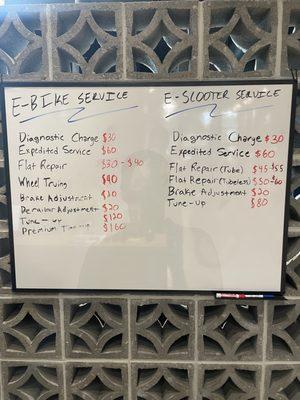 E-BIKE SERVICE
Diagnostic Charge $30
Expedited Service $60
Flat Repair $30-$40
Wheel Truing $40
Brake Adjustment $20
Derailor Adjustment $20
Tune-up $120
Premium $160
E-SCOOTER SERVICE
Diagnostic Charge $30
Expedited Service $60
Flat Repair (Tube) $45-$55
Flat Repair (Tubeless) $50-60
Brake Adjustment $20
Tune-up $80